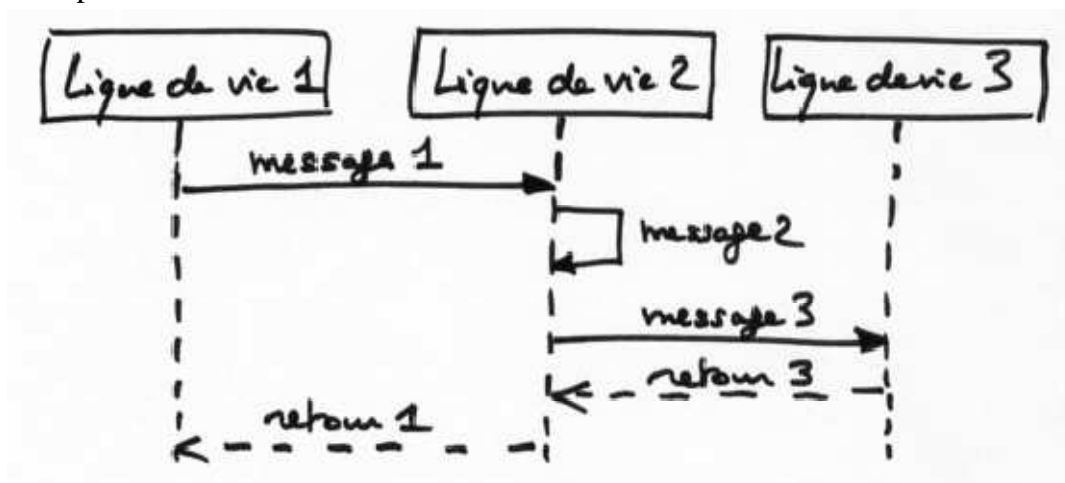 Ligne de vie 1
Ligne de vie 2
Ligne de vie 3
message 1
message 2
message 3
retour 3
retour 1